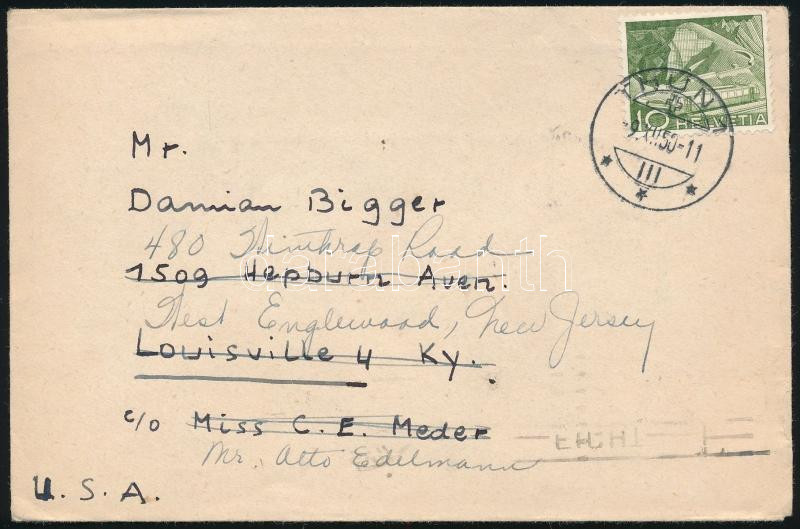 10 HELVETIA
THUN 1
-9.XII.50-11
III
Mr.
Damian Bigger
480 Winthrop Road
1509 Hepburn Aven.
darabanth
West Englewood, New Jersey
Louisville 4 Ky.
c/o Miss C. E. Meder
Mr. Otto Edelmann
U.S.A.